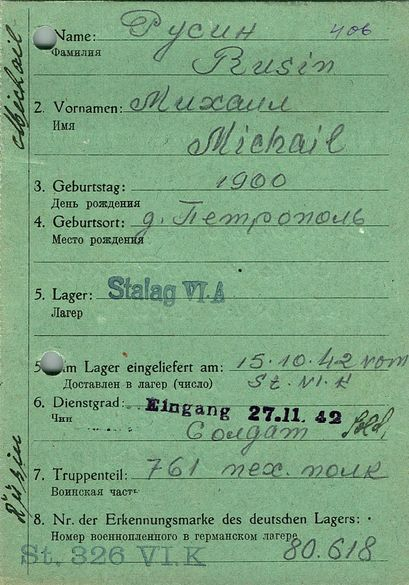 Name: Русин 406
Фамилия
Rusin
2. Vornamen: Михаил
Имя
Michail
3. Geburtstag: 1900
День рождения
4. Geburtsort: д. Петрополь
Место рождения
5. Lager: Stalag VI.A
Лагер
5 im Lager eingeliefert am: 15.10.42 vom
Доставлен в лагер (число) St. VI. K
6. Dienstgrad: Eingang 27.11.42
Чин
Солдат Sold.
7. Truppenteil: 761 пех. полк
Воинская часть
8. Nr. der Erkennungsmarke des deutschen Lagers:
Номер военнопленного в германском лагере
St. 326 VI.K 80.618
Michail
Rusin